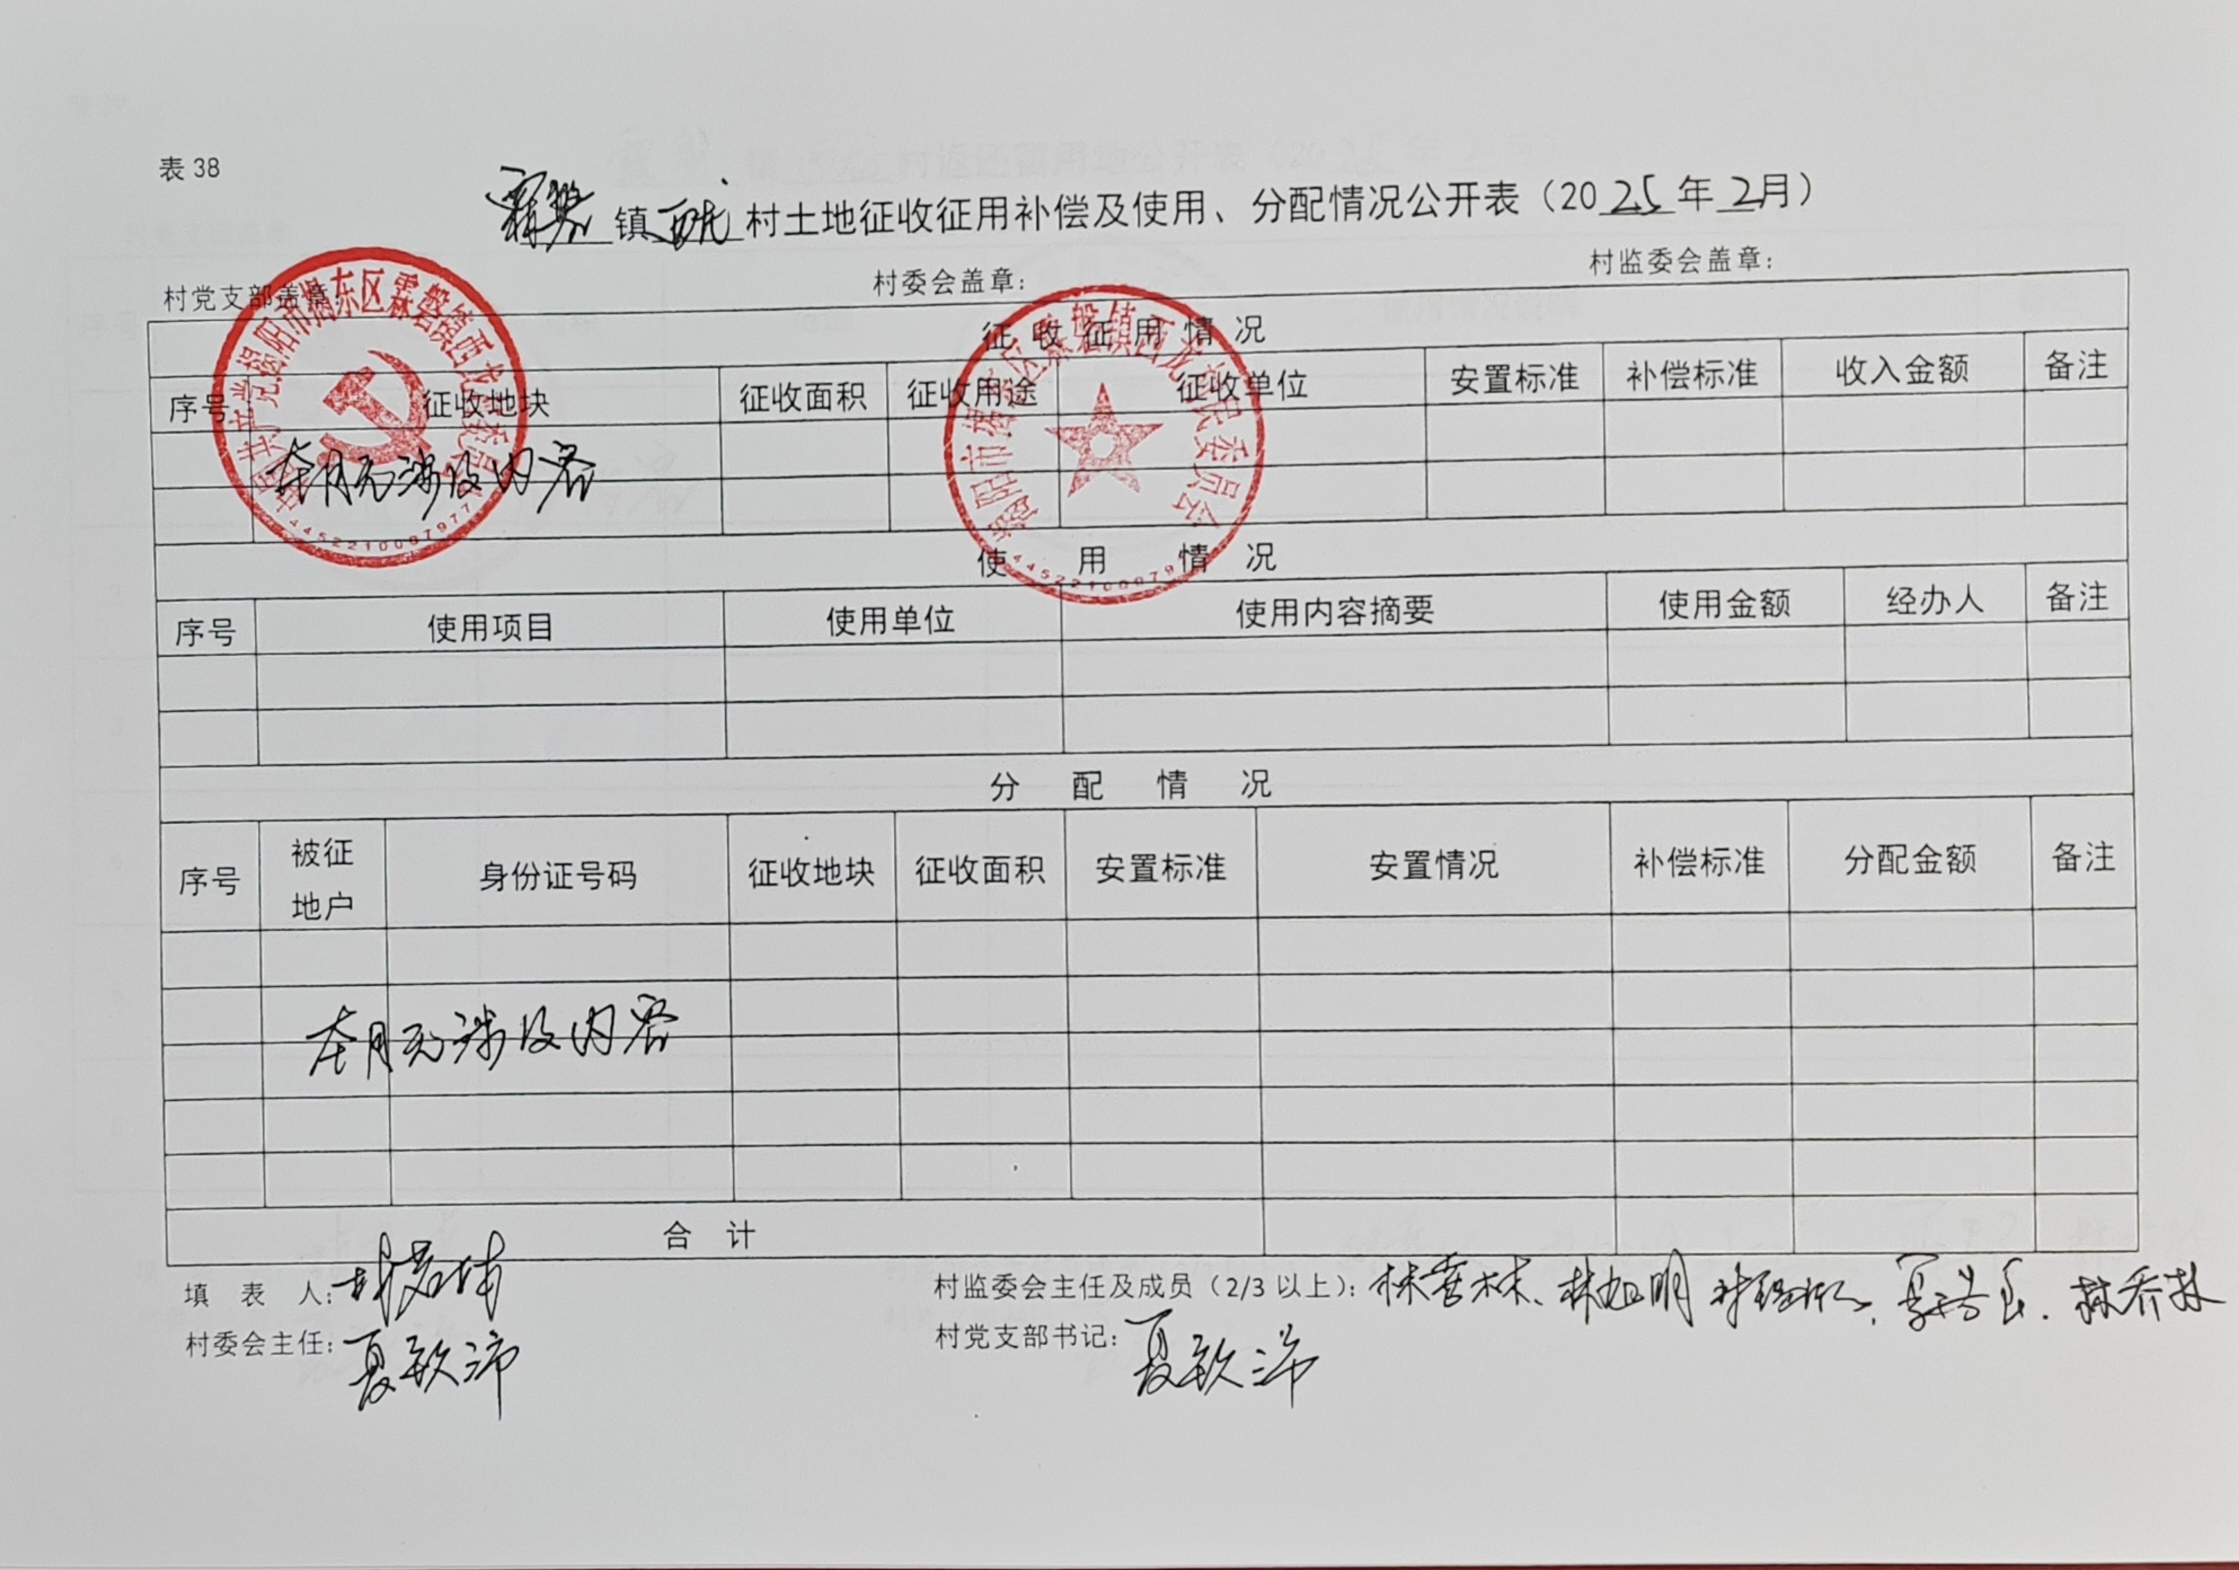 表 38
霖磐镇西龙村土地征收征用补偿及使用、分配情况公开表（2025年2月）
村党支部盖章： 村委会盖章： 村监委会盖章：
征 收 征 用 情 况
序号 征收地块 征收面积 征收用途 征收单位 安置标准 补偿标准 收入金额 备注
本月无涉及内容
使 用 情 况
序号 使用项目 使用单位 使用内容摘要 使用金额 经办人 备注
分 配 情 况
序号 被征地户 身份证号码 征收地块 征收面积 安置标准 安置情况 补偿标准 分配金额 备注
本月无涉及内容
合 计
填 表 人： 村监委会主任及成员（2/3 以上）： 林旭明 林乔林
村委会主任：夏钦沛 村党支部书记：夏钦沛